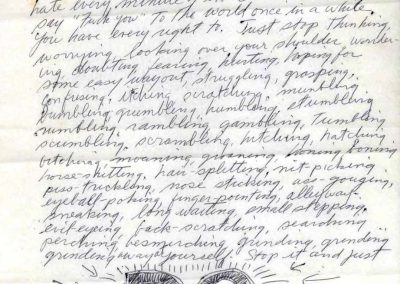 hate every minute of
say "Fuck You" to the world once in a while.
You have every right to. Just stop thinking,
worrying, looking over your shoulder, wonder-
ing, doubting, fearing, hurting, hoping for
some easy way out, struggling, grasping,
confusing, itching, scratching, mumbling,
bumbling, grumbling, humbling, stumbling,
numbling, rambling, gambling, tumbling,
scumbling, scrambling, hitching, hatching,
bitching, moaning, groaning, honing, boning,
horse-shitting, hair-splitting, nit-picking,
piss-trickling, nose sticking, ass-gouging,
eyeball-poking, finger-pointing, alleyway-
sneaking, long waiting, small stepping,
evil-eyeing, back-scratching, searching,
perching, besmirching, grinding, grinding,
grinding away at yourself. Stop it and just